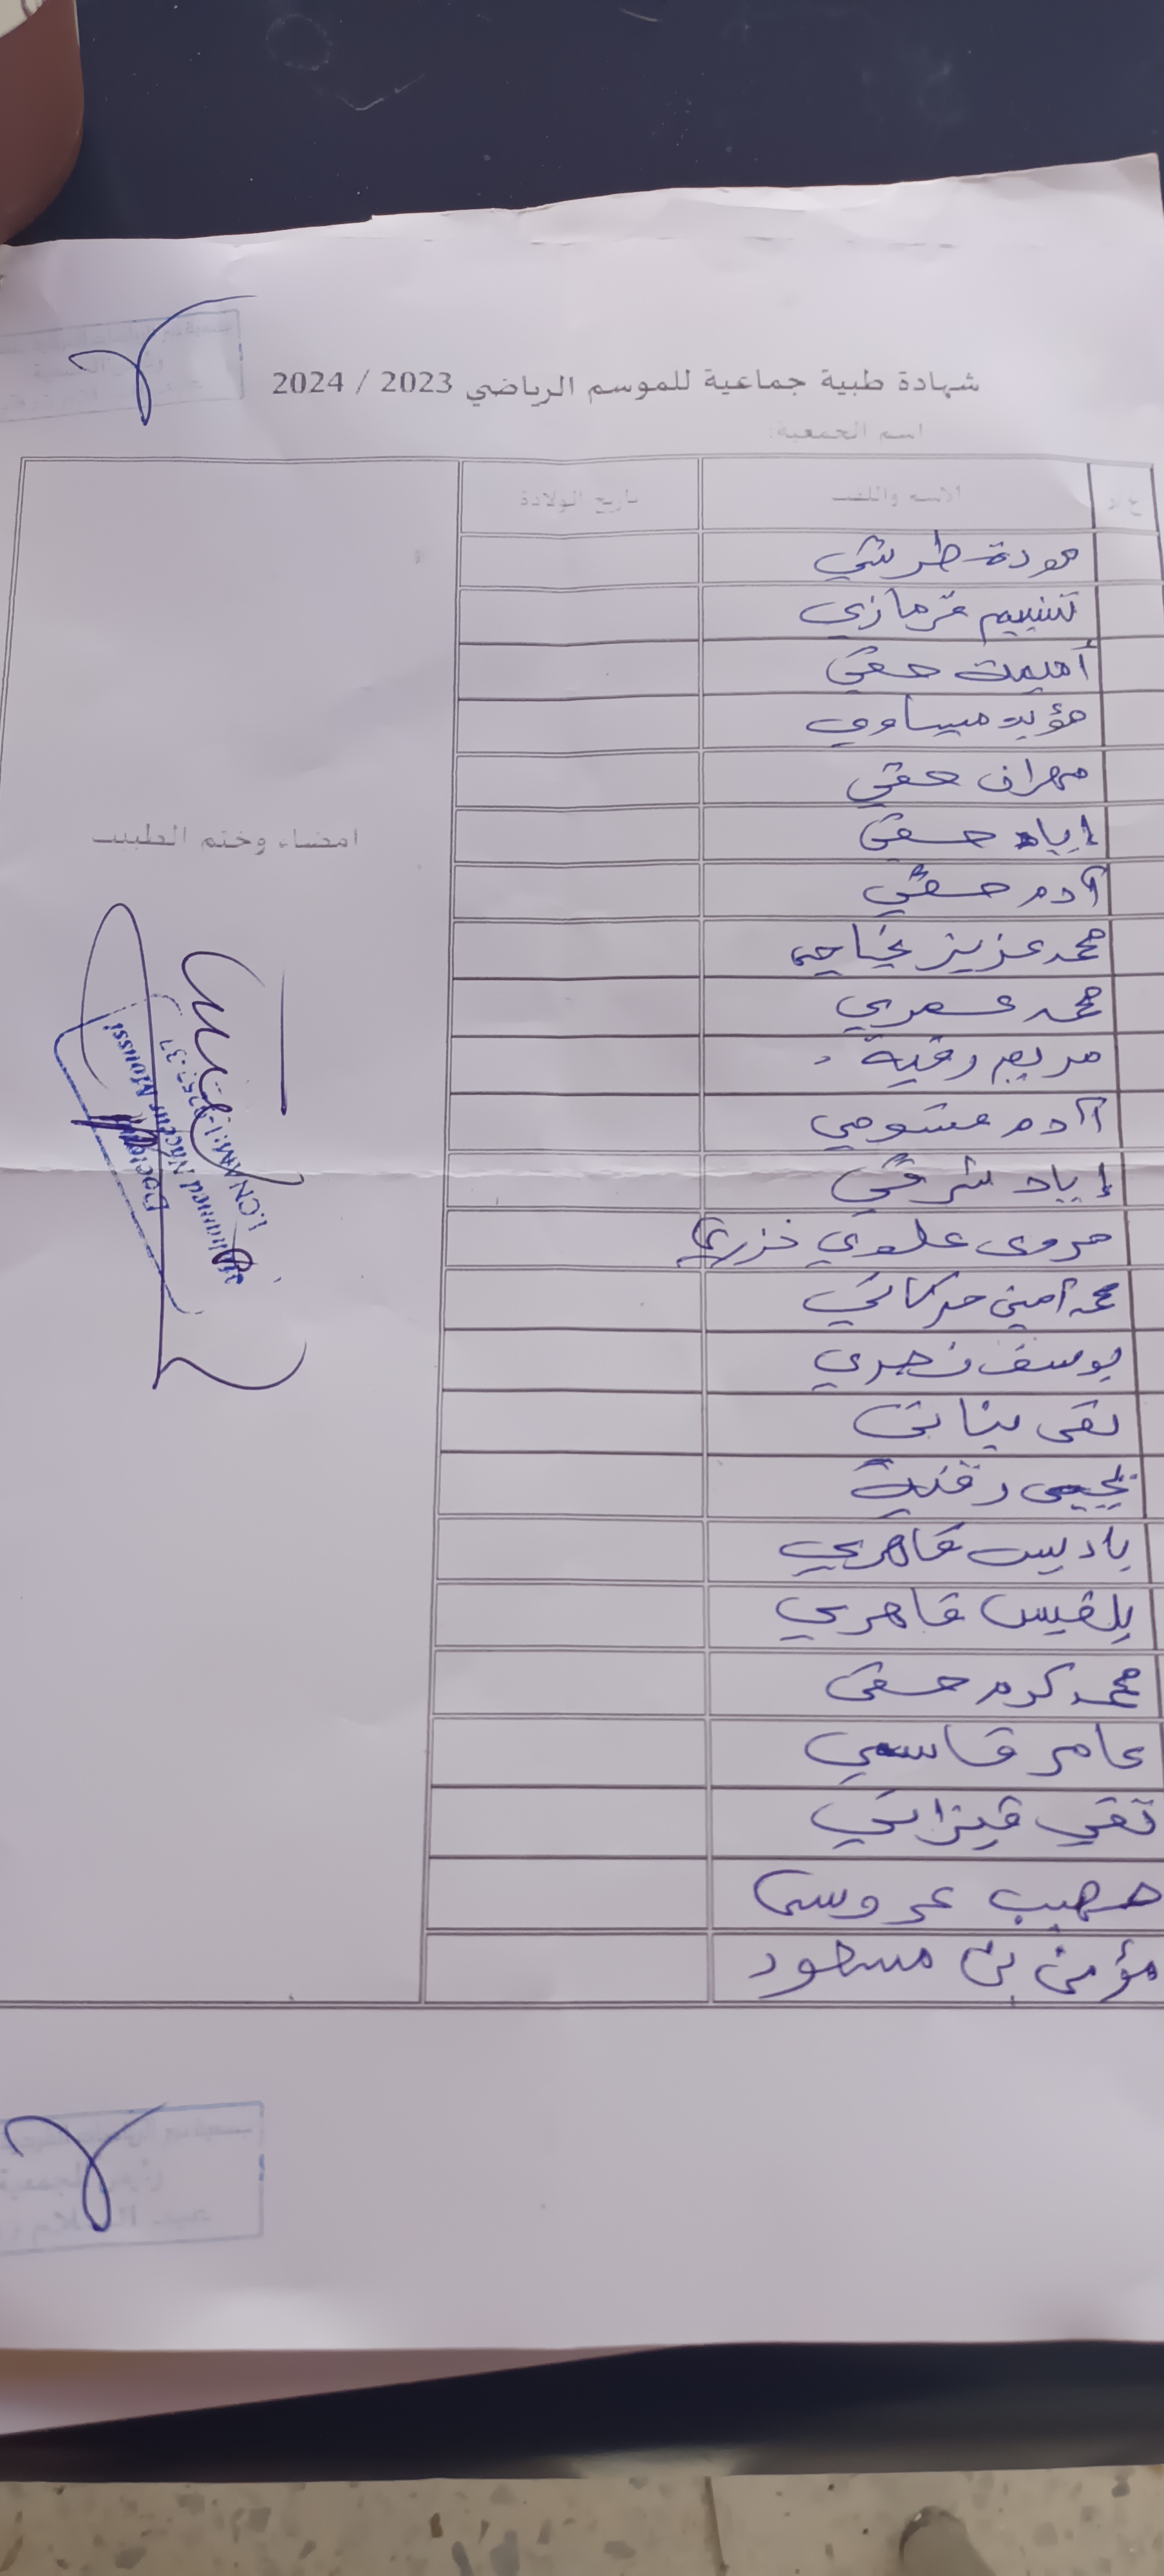 شهادة طبية جماعية للموسم الرياضي 2023 / 2024
اسم الجمعية:
ع/ر الاسم واللقب تاريخ الولادة
مودة طريشي
تسنيم قرمازي
أميمة حقي
مؤيد عيساوي
مهران حقي
إياد حقي
آدم حقي
محمد عزيز
محمد عمري
مريم رقية
آدم
إياد شرقي
مروى علوي خزري
محمد أمين بركاتي
يوسف نصري
تقى بناني
يحيى رقية
باديس قاهري
بلقيس قاهري
محمد كرم حقي
عامر قاسمي
تقي قيزاني
صهيب عروسي
مؤمن بن مسعود
امضاء وختم الطبيب
Docteur
Mohamed Naceur Moussi